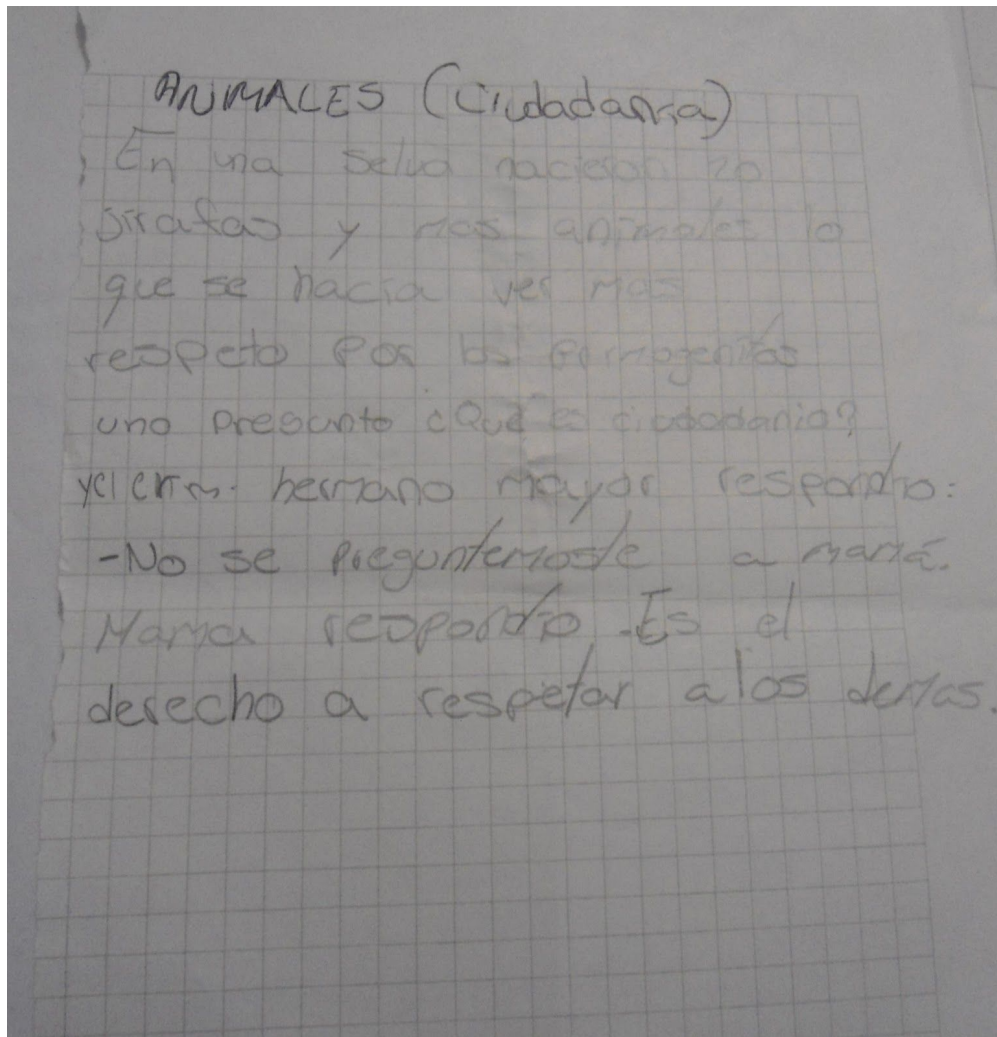 ANIMALES (Ciudadania)
En una selva nacieron 20
jirafas y mas animales lo
que se hacia ver mas
respeto por los primogenitos
uno pregunto ¿Qué es ciudadania?
y el hermano mayor respondio:
-No se preguntemosle a mamá.
Mama respondio -Es el
derecho a respetar a los demas.